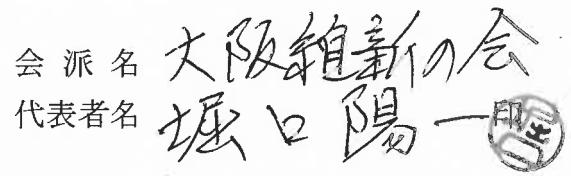 会派名 大阪維新の会
代表者名 堀口陽一 印